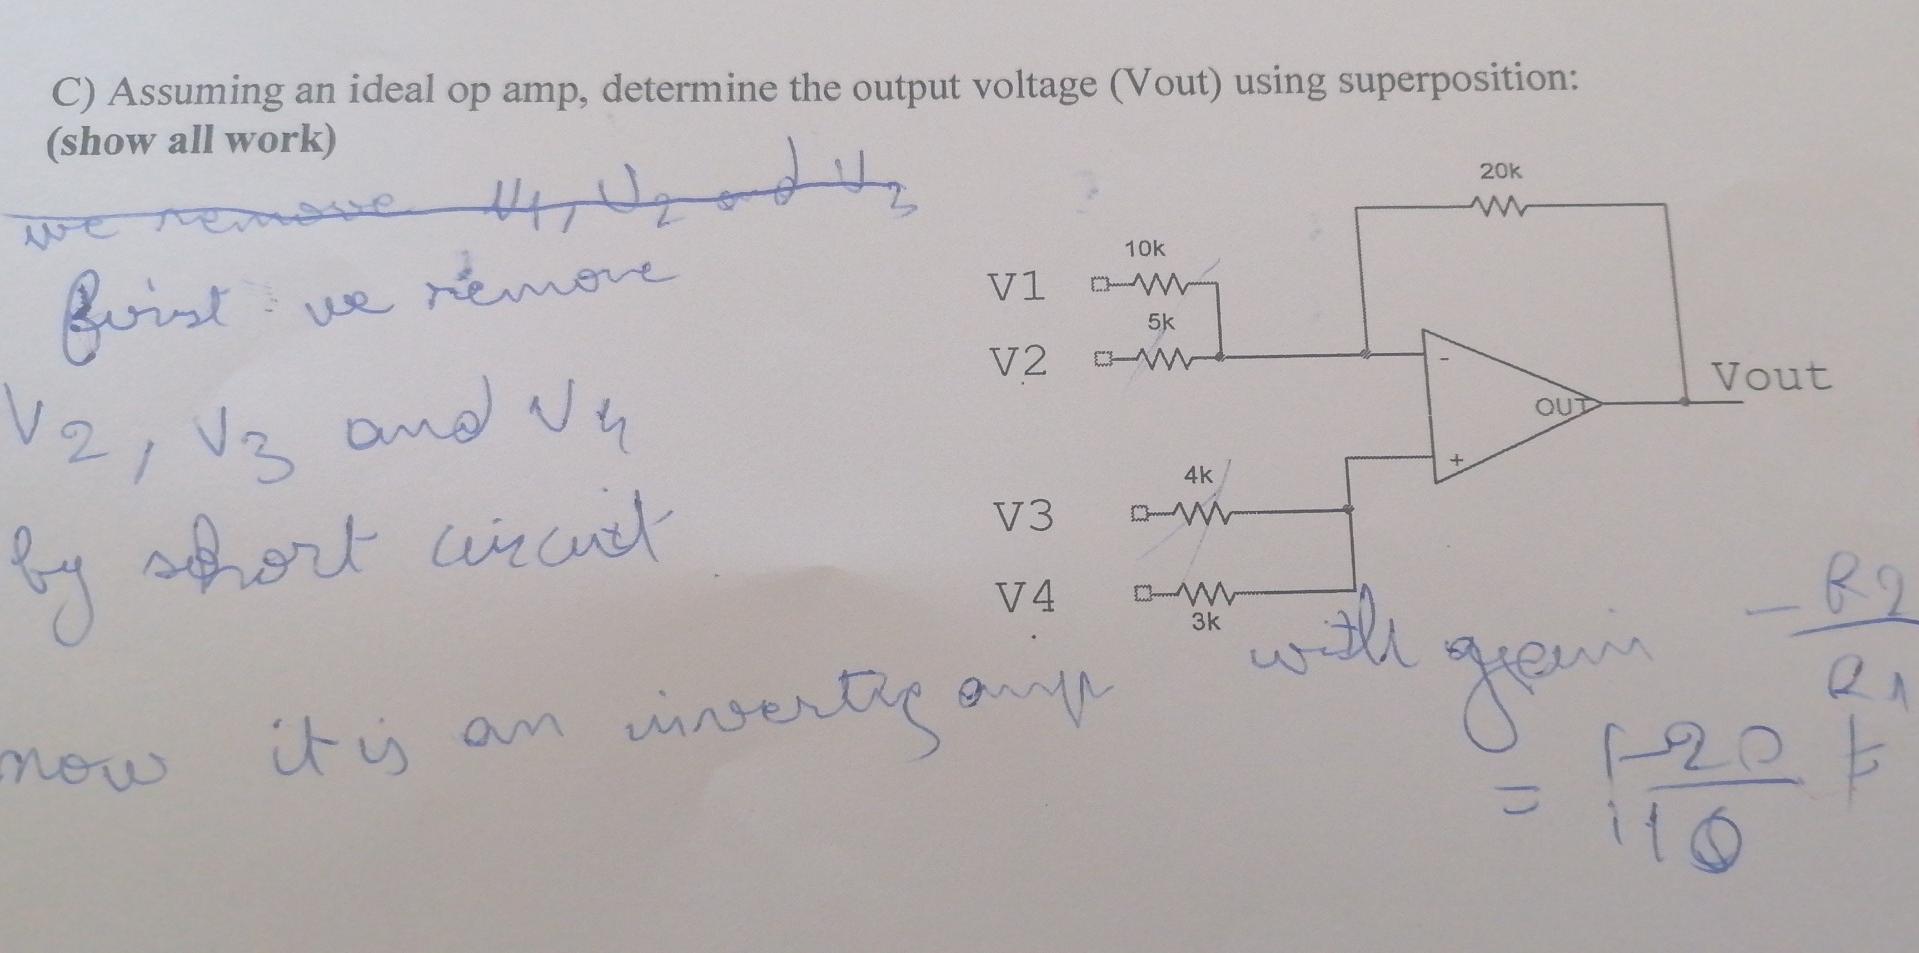 C) Assuming an ideal op amp, determine the output voltage (Vout) using superposition:
(show all work)
we remove V1, V2 and V3
first we remove
V2, V3 and V4
by short circuit
now it is an inverting amp with gain -R2
R1
= -20
10
20k
10k
V1
5k
V2
-
Vout
OUT
+
4k
V3
V4
3k